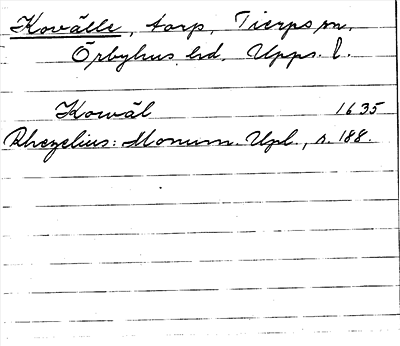 Kovälle, torp, Tierps sn,
Örbyhus hd, Upps. l.
Kowäl 1635
Rhezelius: Monum. Upl., s. 188.